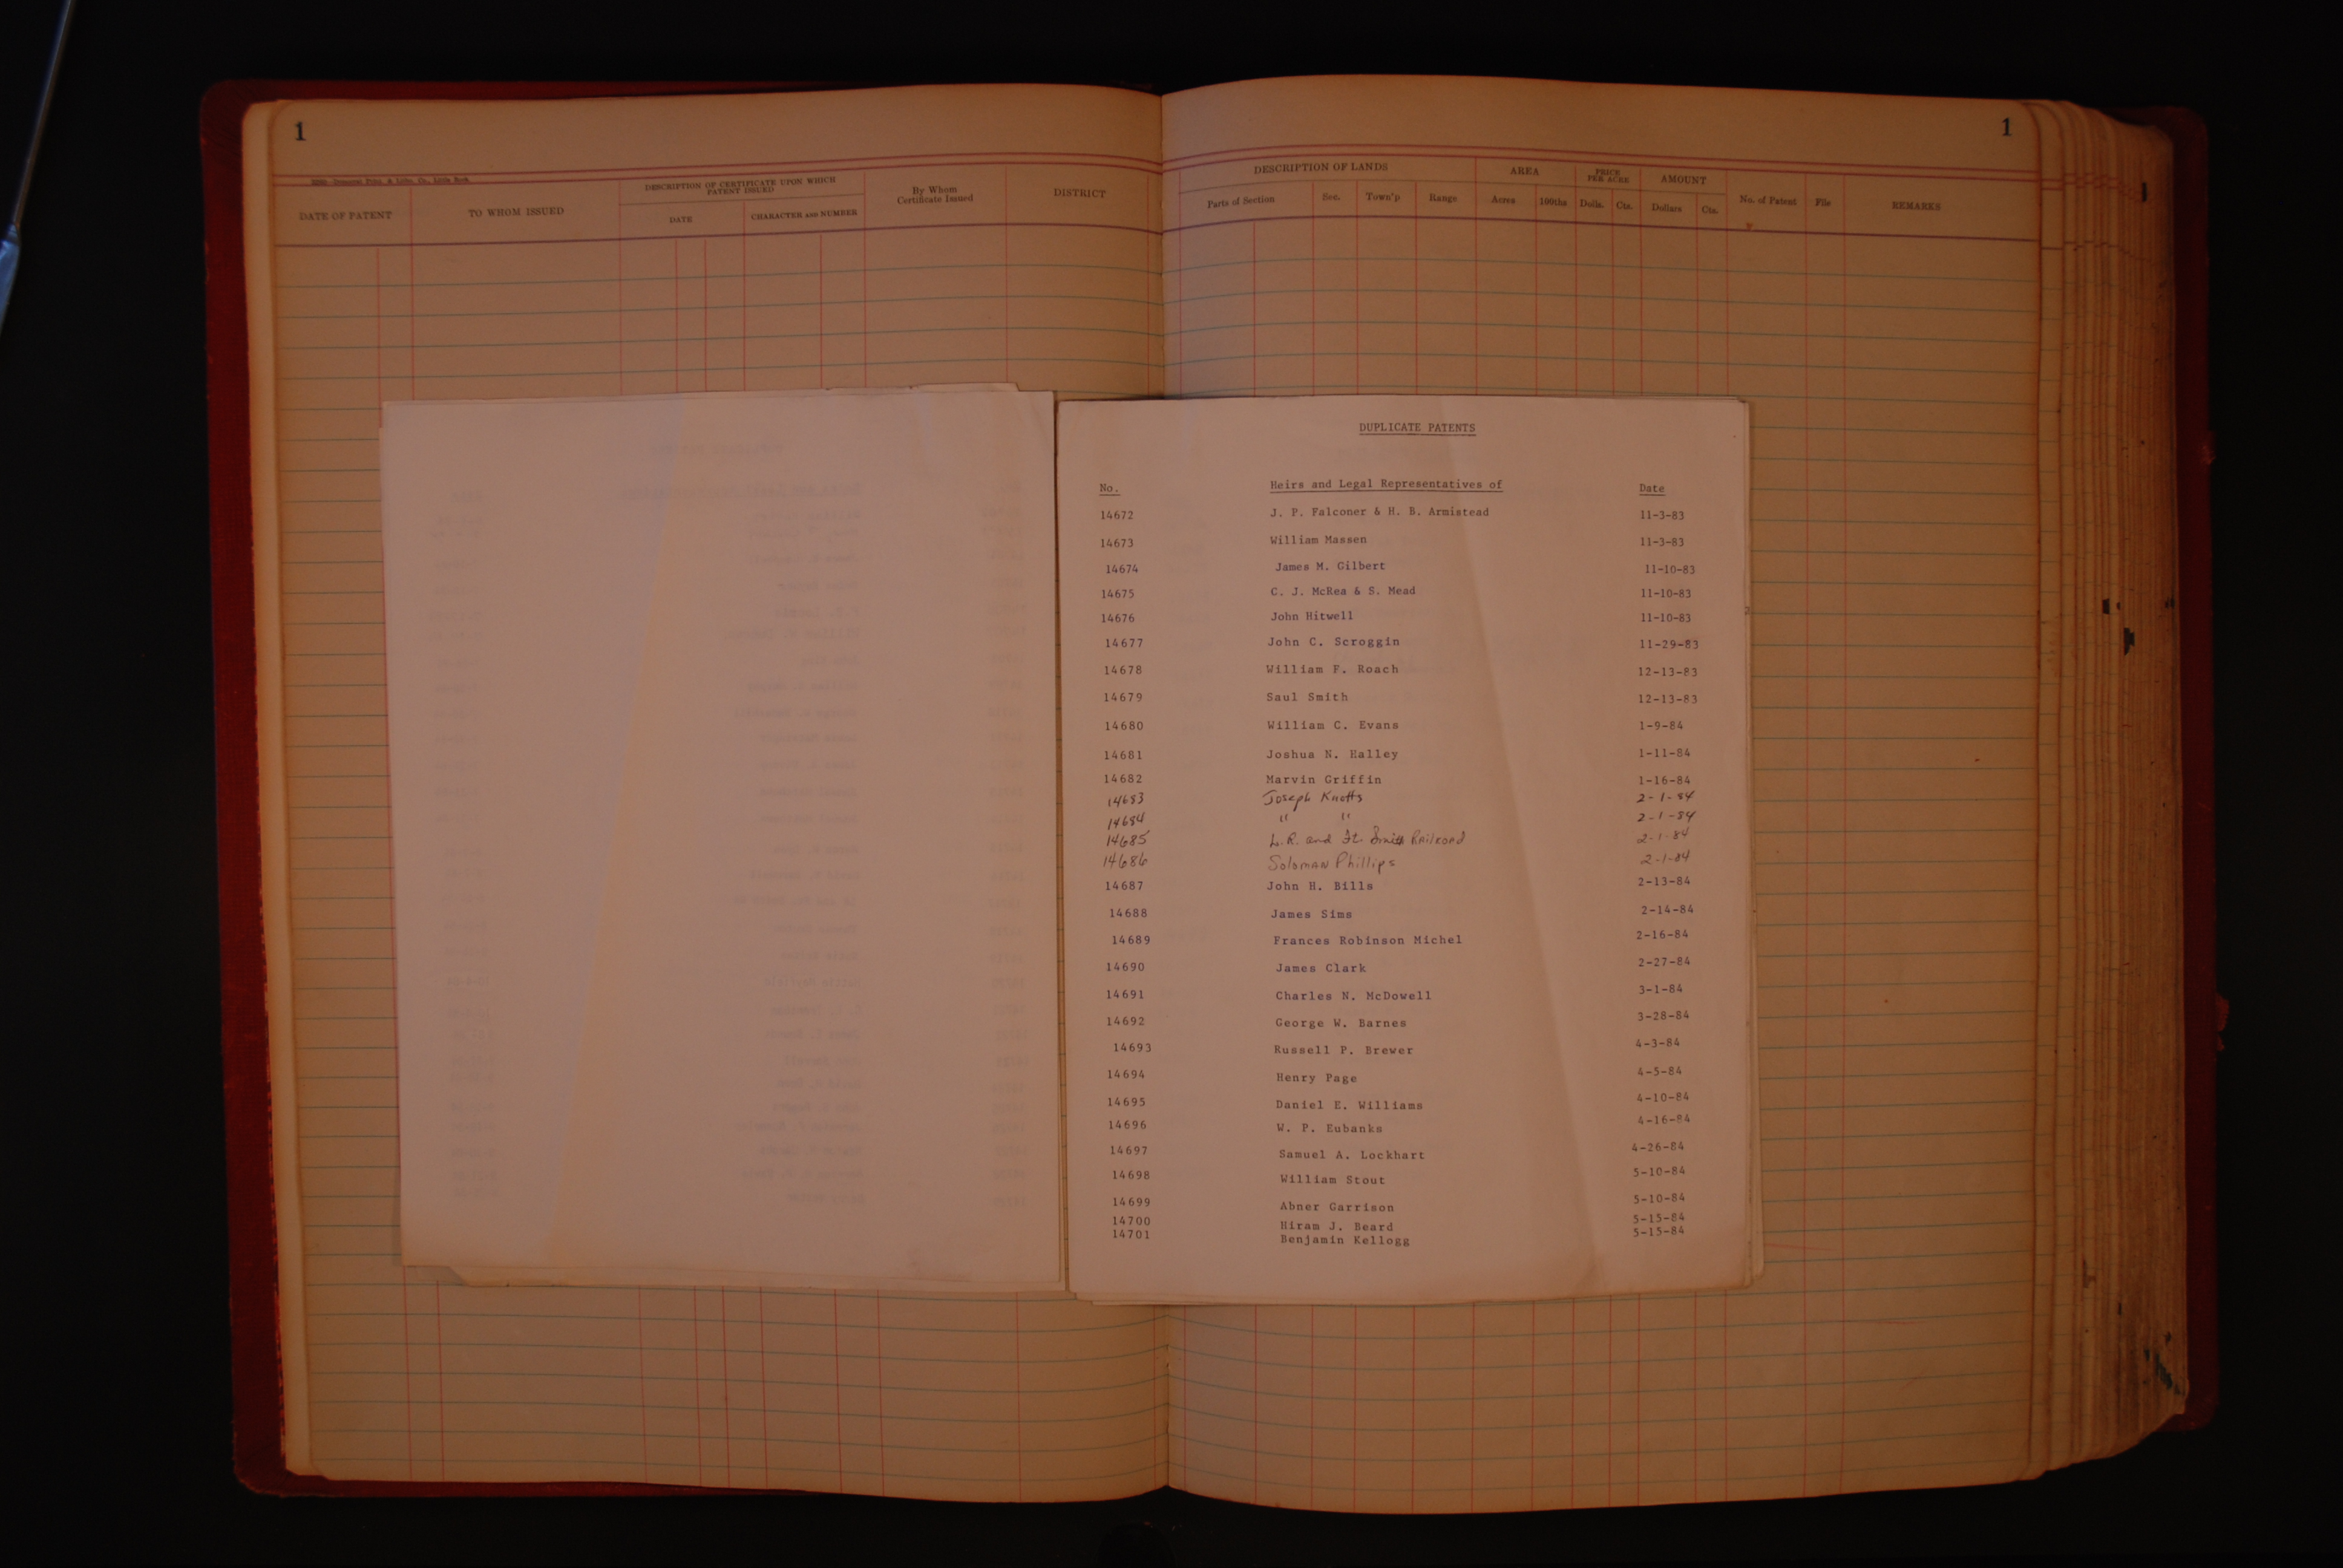 1
1
DATE OF PATENT TO WHOM ISSUED DESCRIPTION OF CERTIFICATE UPON WHICH PATENT ISSUED DATE CHARACTER AND NUMBER By Whom Certificate Issued DISTRICT
DESCRIPTION OF LANDS AREA PRICE PER ACRE AMOUNT
Parts of Section Sec. Town'p Range Acres 100ths Dolls. Cts. Dollars Cts. No. of Patent File REMARKS
DUPLICATE PATENTS
No. Heirs and Legal Representatives of Date
14672 J. P. Falconer & H. B. Armistead 11-3-83
14673 William Massen 11-3-83
14674 James M. Gilbert 11-10-83
14675 C. J. McRea & S. Mead 11-10-83
14676 John Hitwell 11-10-83
14677 John C. Scroggin 11-29-83
14678 William F. Roach 12-13-83
14679 Saul Smith 12-13-83
14680 William C. Evans 1-9-84
14681 Joshua N. Halley 1-11-84
14682 Marvin Griffin 1-16-84
14683 Joseph Knotts 2-1-84
14684 " " 2-1-84
14685 L.R. and Ft. Smith Railroad 2-1-84
14686 Soloman Phillips 2-1-84
14687 John H. Bills 2-13-84
14688 James Sims 2-14-84
14689 Frances Robinson Michel 2-16-84
14690 James Clark 2-27-84
14691 Charles N. McDowell 3-1-84
14692 George W. Barnes 3-28-84
14693 Russell P. Brewer 4-3-84
14694 Henry Page 4-5-84
14695 Daniel E. Williams 4-10-84
14696 W. P. Eubanks 4-16-84
14697 Samuel A. Lockhart 4-26-84
14698 William Stout 5-10-84
14699 Abner Garrison 5-10-84
14700 Hiram J. Beard 5-15-84
14701 Benjamin Kellogg 5-15-84